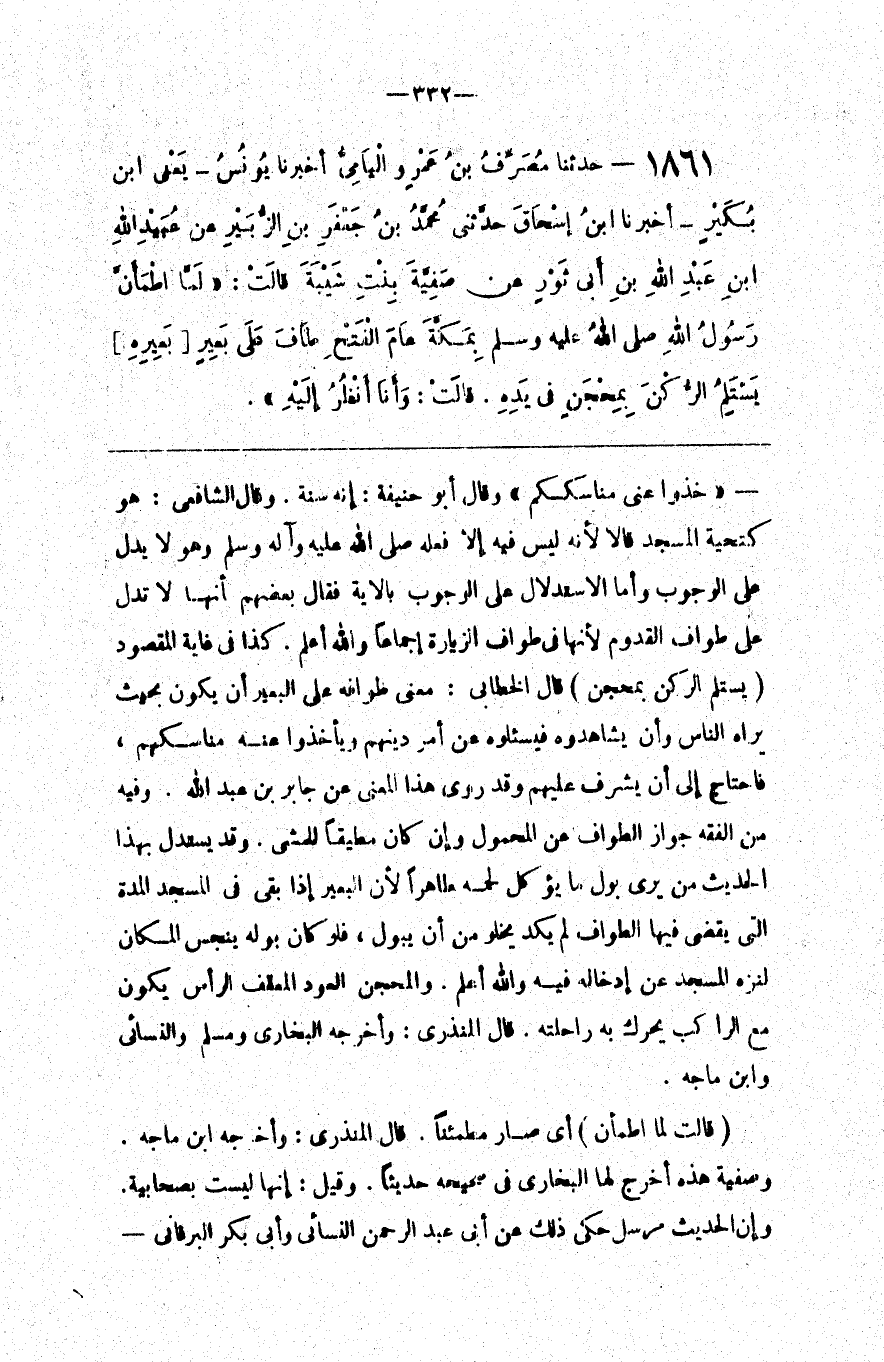 —٣٣٢—
١٨٦١ — حدثنا مُصَرِّفُ بنُ عَمْرٍو الْيَامِىُّ أخبرنا يُونُسُ – يَعْنِى ابن
بُكَيْرٍ – أخبرنا ابنُ إسْحَاقَ حدَّثنى مُحمَّدُ بنُ جَعْفَرِ بنِ الزُّبَيْرِ عن عُبَيْدِ اللهِ
ابنِ عَبْدِ اللهِ بنِ أبى ثَوْرٍ عن صَفِيَّةَ بِنْتِ شَيْبَةَ قالَتْ : « لَمَّا اطْمَأنَّ
رَسُولُ اللهِ صلى اللهُ عليه وسلم بِمَكَّةَ عَامَ الْفَتْحِ طَافَ عَلَى بَعِيرٍ [ بَعِيرِهِ ]
يَسْتَلِمُ الرُّكْنَ بِمِحْجَنٍ فى يَدِهِ . قالَتْ : وَأَنا أَنْظُرُ إلَيْهِ » .
— « خذوا عنى مناسككم » وقال أبو حنيفة : إنه سنة . وقال الشافعى : هو
كتحية المسجد قالا لأنه ليس فيه إلا فعله صلى الله عليه وآله وسلم وهو لا يدل
على الوجوب وأما الاستدلال على الوجوب بالاية فقال بعضهم أنها لا تدل
على طواف القدوم لأنها فى طواف الزيارة إجماعاً والله أعلم . كذا فى غاية المقصود
( يستلم الركن بمحجن ) قال الخطابى : معنى طوافه على البعير أن يكون بحيث
يراه الناس وأن يشاهدوه فيسئلوه عن أمر دينهم ويأخذوا عنه مناسكهم ،
فاحتاج إلى أن يشرف عليهم وقد روى هذا المعنى عن جابر بن عبد الله . وفيه
من الفقه جواز الطواف عن المحمول وإن كان مطيقاً للمشى . وقد يستدل بهذا
الحديث من يرى بول ما يؤكل لحمه طاهراً لأن البعير إذا بقى فى المسجد المدة
التى يقضى فيها الطواف لم يكد يخلو من أن يبول ، فلو كان بوله ينجس المكان
لنزه المسجد عن إدخاله فيه والله أعلم . والمحجن العود المعقف الرأس يكون
مع الراكب يحرك به راحلته . قال المنذرى : وأخرجه البخارى ومسلم والنسائى
وابن ماجه .
( قالت لما اطمأن ) أى صار مطمئناً . قال المنذرى : وأخرجه ابن ماجه .
وصفية هذه أخرج لها البخارى فى صحيحه حديثاً . وقيل : إنها ليست بصحابية .
وإن الحديث مرسل حكى ذلك عن أبى عبد الرحمن النسائى وأبى بكر البرقانى —